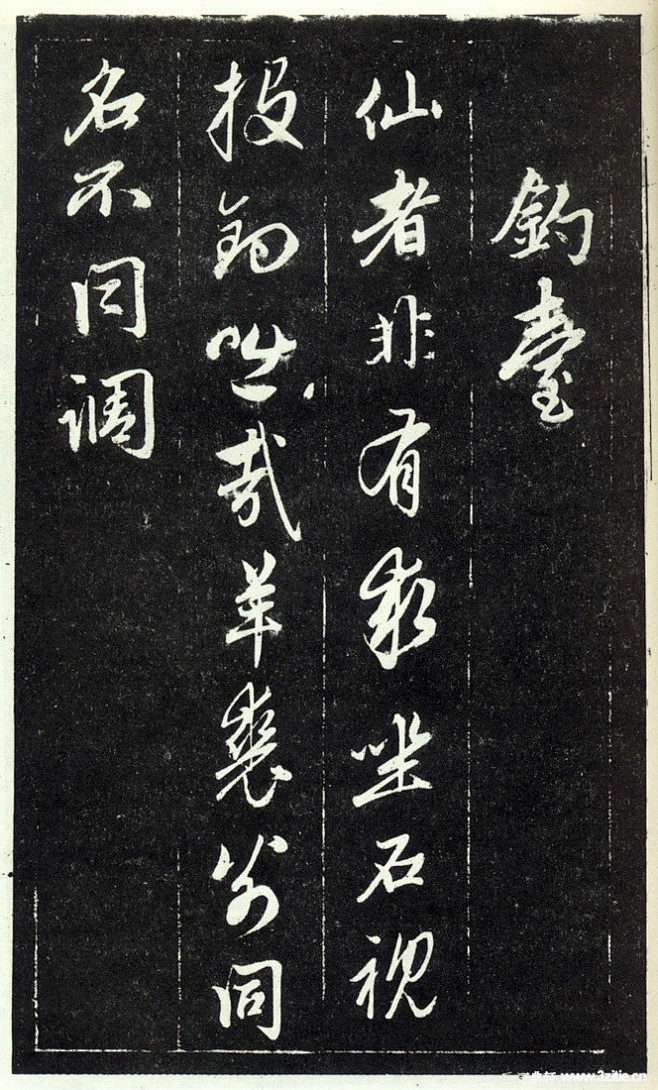 釣臺
仙者非有求坐石視
投釣咄哉羊裘翁同
名不同調
www.3zitie.cn